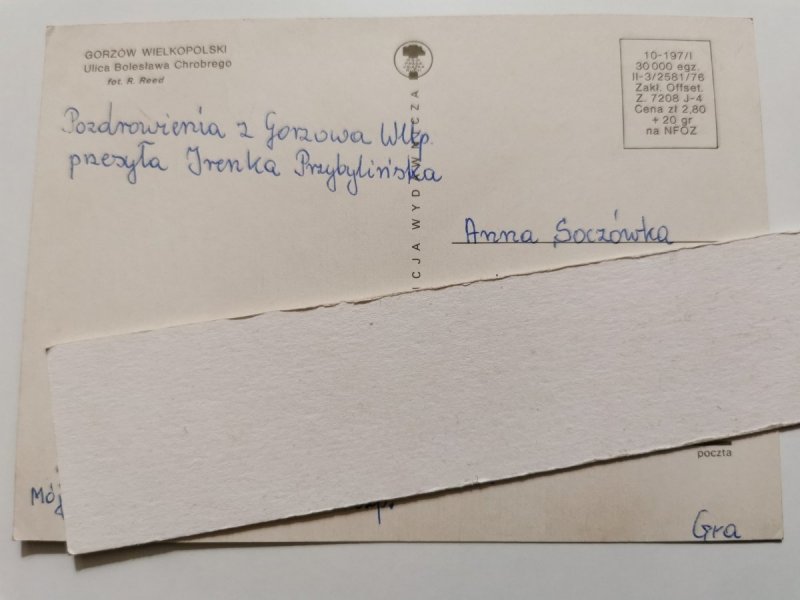 GORZÓW WIELKOPOLSKI
Ulica Bolesława Chrobrego
fot. R. Reed
Pozdrowienia z Gorzowa Wlkp.
przesyła Irenka Przybylińska
ICJA WYDAWNICZA
10-197/I
30 000 egz.
II-3/2581/76
Zakł. Offset.
Z. 7208 J-4
Cena zł 2,80
+ 20 gr
na NFOZ
Anna Soczówka
poczta
Mój
Gra